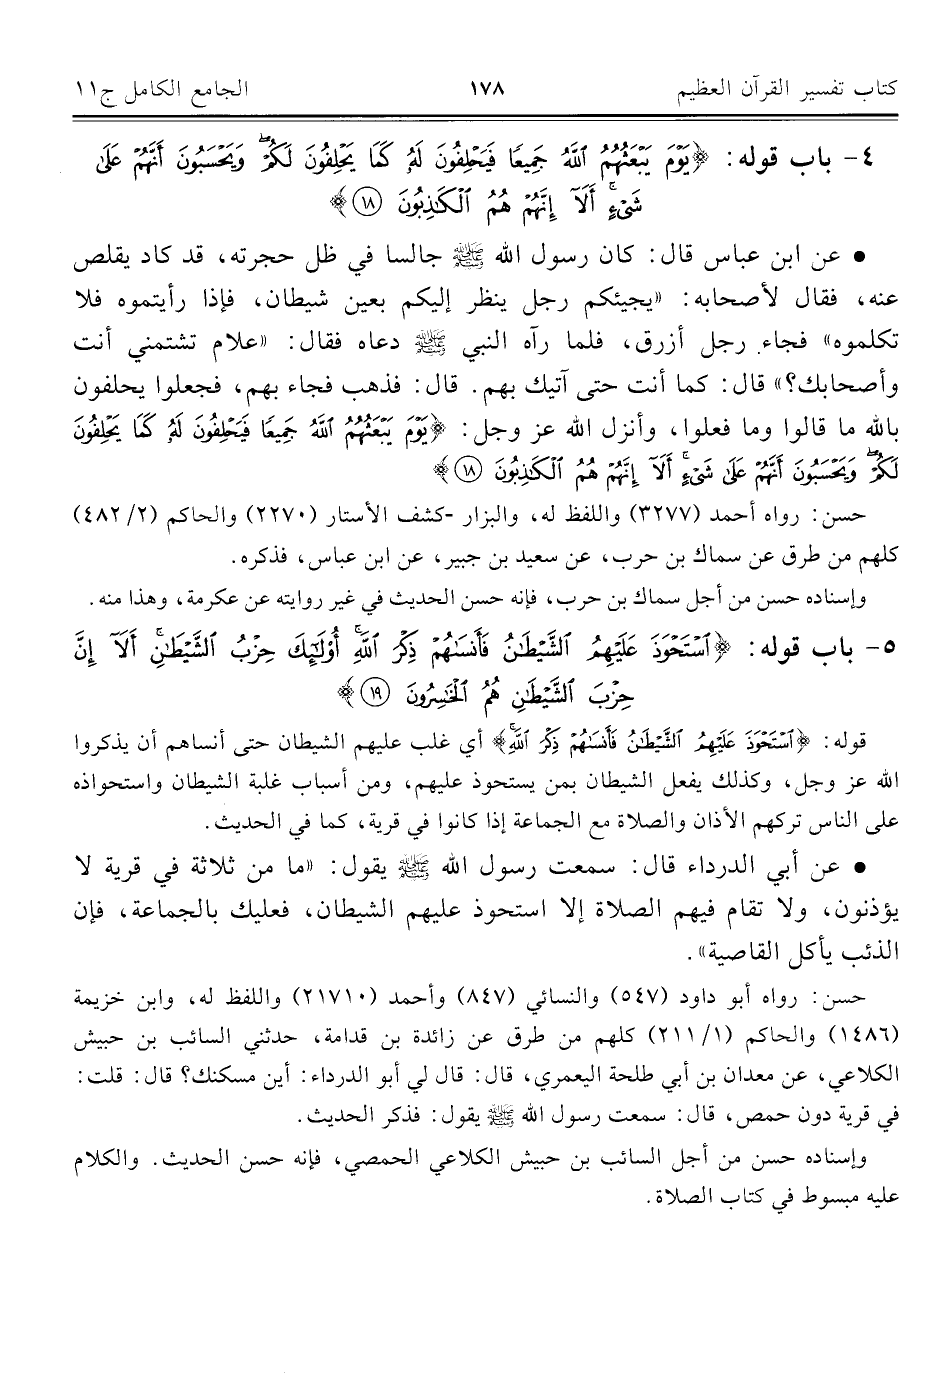 كتاب تفسير القرآن العظيم ١٧٨ الجامع الكامل ج١١
٤- باب قوله: ﴿يَوْمَ يَبْعَثُهُمُ ٱللَّهُ جَمِيعًا فَيَحْلِفُونَ لَهُۥ كَمَا يَحْلِفُونَ لَكُمْ ۖ وَيَحْسَبُونَ أَنَّهُمْ عَلَىٰ
شَىْءٍ ۚ أَلَآ إِنَّهُمْ هُمُ ٱلْكَـٰذِبُونَ ١٨﴾
● عن ابن عباس قال: كان رسول الله ﷺ جالسا في ظل حجرته، قد كاد يقلص
عنه، فقال لأصحابه: «يجيئكم رجل ينظر إليكم بعين شيطان، فإذا رأيتموه فلا
تكلموه» فجاء رجل أزرق، فلما رآه النبي ﷺ دعاه فقال: «علام تشتمني أنت
وأصحابك؟» قال: كما أنت حتى آتيك بهم. قال: فذهب فجاء بهم، فجعلوا يحلفون
بالله ما قالوا وما فعلوا، وأنزل الله عز وجل: ﴿يَوْمَ يَبْعَثُهُمُ ٱللَّهُ جَمِيعًا فَيَحْلِفُونَ لَهُۥ كَمَا يَحْلِفُونَ
لَكُمْ ۖ وَيَحْسَبُونَ أَنَّهُمْ عَلَىٰ شَىْءٍ ۚ أَلَآ إِنَّهُمْ هُمُ ٱلْكَـٰذِبُونَ ١٨﴾
حسن: رواه أحمد (٣٢٧٧) واللفظ له، والبزار -كشف الأستار (٢٢٧٠) والحاكم (٤٨٢/٢)
كلهم من طرق عن سماك بن حرب، عن سعيد بن جبير، عن ابن عباس، فذكره.
وإسناده حسن من أجل سماك بن حرب، فإنه حسن الحديث في غير روايته عن عكرمة، وهذا منه.
٥- باب قوله: ﴿ٱسْتَحْوَذَ عَلَيْهِمُ ٱلشَّيْطَـٰنُ فَأَنسَىٰهُمْ ذِكْرَ ٱللَّهِ ۚ أُو۟لَـٰٓئِكَ حِزْبُ ٱلشَّيْطَـٰنِ ۚ أَلَآ إِنَّ
حِزْبَ ٱلشَّيْطَـٰنِ هُمُ ٱلْخَـٰسِرُونَ ١٩﴾
قوله: ﴿ٱسْتَحْوَذَ عَلَيْهِمُ ٱلشَّيْطَـٰنُ فَأَنسَىٰهُمْ ذِكْرَ ٱللَّهِ ۚ﴾ أي غلب عليهم الشيطان حتى أنساهم أن يذكروا
الله عز وجل، وكذلك يفعل الشيطان بمن يستحوذ عليهم، ومن أسباب غلبة الشيطان واستحواذه
على الناس تركهم الأذان والصلاة مع الجماعة إذا كانوا في قرية، كما في الحديث.
● عن أبي الدرداء قال: سمعت رسول الله ﷺ يقول: «ما من ثلاثة في قرية لا
يؤذنون، ولا تقام فيهم الصلاة إلا استحوذ عليهم الشيطان، فعليك بالجماعة، فإن
الذئب يأكل القاصية».
حسن: رواه أبو داود (٥٤٧) والنسائي (٨٤٧) وأحمد (٢١٧١٠) واللفظ له، وابن خزيمة
(١٤٨٦) والحاكم (٢١١/١) كلهم من طرق عن زائدة بن قدامة، حدثني السائب بن حبيش
الكلاعي، عن معدان بن أبي طلحة اليعمري، قال: قال لي أبو الدرداء: أين مسكنك؟ قال: قلت:
في قرية دون حمص، قال: سمعت رسول الله ﷺ يقول: فذكر الحديث.
وإسناده حسن من أجل السائب بن حبيش الكلاعي الحمصي، فإنه حسن الحديث. والكلام
عليه مبسوط في كتاب الصلاة.